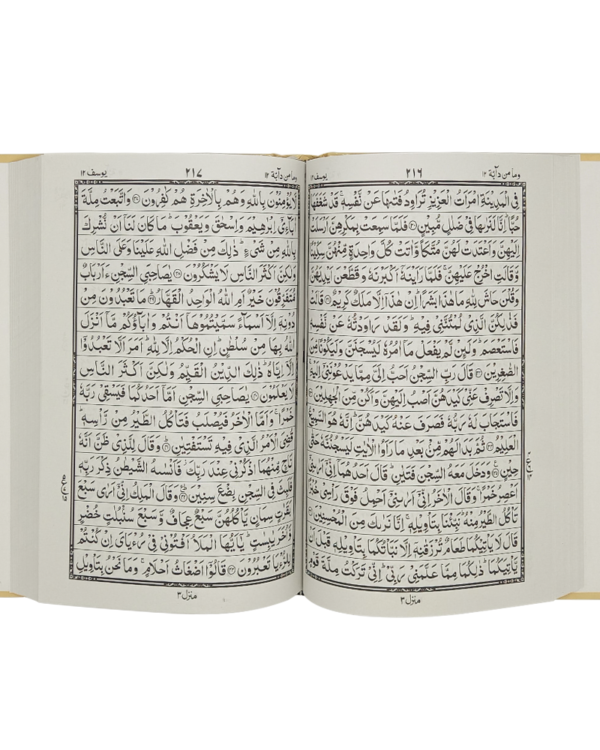 وما من دآبة ١٢
٢١٦
يوسف ١٢
فِى الْمَدِيْنَةِ امْرَاَتُ الْعَزِيْزِ تُرَاوِدُ فَتٰىهَا عَنْ نَّفْسِهٖ ۚ قَدْ شَغَفَهَا
حُبًّا ؕ اِنَّا لَنَرٰىهَا فِىْ ضَلٰلٍ مُّبِيْنٍ ۝ فَلَمَّا سَمِعَتْ بِمَكْرِهِنَّ اَرْسَلَتْ
اِلَيْهِنَّ وَاَعْتَدَتْ لَهُنَّ مُتَّكَاً وَّاٰتَتْ كُلَّ وَاحِدَةٍ مِّنْهُنَّ سِكِّيْنًا
وَّقَالَتِ اخْرُجْ عَلَيْهِنَّ ۚ فَلَمَّا رَاَيْنَهٗۤ اَكْبَرْنَهٗ وَقَطَّعْنَ اَيْدِيَهُنَّ
وَقُلْنَ حَاشَ لِلّٰهِ مَا هٰذَا بَشَرًا ؕ اِنْ هٰذَاۤ اِلَّا مَلَكٌ كَرِيْمٌ ۝ قَالَتْ
فَذٰلِكُنَّ الَّذِىْ لُمْتُنَّنِىْ فِيْهِ ؕ وَلَقَدْ رَاوَدْتُّهٗ عَنْ نَّفْسِهٖ
فَاسْتَعْصَمَ ؕ وَلَئِنْ لَّمْ يَفْعَلْ مَاۤ اٰمُرُهٗ لَيُسْجَنَنَّ وَلَيَكُوْنًا مِّنَ
الصّٰغِرِيْنَ ۝ قَالَ رَبِّ السِّجْنُ اَحَبُّ اِلَىَّ مِمَّا يَدْعُوْنَنِىْۤ اِلَيْهِ ۚ
وَاِلَّا تَصْرِفْ عَنِّىْ كَيْدَهُنَّ اَصْبُ اِلَيْهِنَّ وَاَكُنْ مِّنَ الْجٰهِلِيْنَ ۝
فَاسْتَجَابَ لَهٗ رَبُّهٗ فَصَرَفَ عَنْهُ كَيْدَهُنَّ ؕ اِنَّهٗ هُوَ السَّمِيْعُ
الْعَلِيْمُ ۝ ثُمَّ بَدَا لَهُمْ مِّنْۢ بَعْدِ مَا رَاَوُا الْاٰيٰتِ لَيَسْجُنُنَّهٗ حَتّٰى
حِيْنٍ ۝ وَدَخَلَ مَعَهُ السِّجْنَ فَتَيٰنِ ؕ قَالَ اَحَدُهُمَاۤ اِنِّىْۤ اَرٰىنِىْۤ
اَعْصِرُ خَمْرًا ۚ وَقَالَ الْاٰخَرُ اِنِّىْۤ اَرٰىنِىْۤ اَحْمِلُ فَوْقَ رَاْسِىْ خُبْزًا
تَاْكُلُ الطَّيْرُ مِنْهُ ؕ نَبِّئْنَا بِتَاْوِيْلِهٖ ۚ اِنَّا نَرٰىكَ مِنَ الْمُحْسِنِيْنَ ۝
قَالَ لَا يَاْتِيْكُمَا طَعَامٌ تُرْزَقٰنِهٖۤ اِلَّا نَبَّاْتُكُمَا بِتَاْوِيْلِهٖ قَبْلَ اَنْ
يَّاْتِيَكُمَا ؕ ذٰلِكُمَا مِمَّا عَلَّمَنِىْ رَبِّىْ ؕ اِنِّىْ تَرَكْتُ مِلَّةَ قَوْمٍ
منزل ٣
وما من دآبة ١٢
٢١٧
يوسف ١٢
لَّا يُؤْمِنُوْنَ بِاللّٰهِ وَهُمْ بِالْاٰخِرَةِ هُمْ كٰفِرُوْنَ ۝ وَاتَّبَعْتُ مِلَّةَ
اٰبَآءِىْۤ اِبْرٰهِيْمَ وَاِسْحٰقَ وَيَعْقُوْبَ ؕ مَا كَانَ لَنَاۤ اَنْ نُّشْرِكَ
بِاللّٰهِ مِنْ شَىْءٍ ؕ ذٰلِكَ مِنْ فَضْلِ اللّٰهِ عَلَيْنَا وَعَلَى النَّاسِ
وَلٰكِنَّ اَكْثَرَ النَّاسِ لَا يَشْكُرُوْنَ ۝ يٰصَاحِبَىِ السِّجْنِ ءَاَرْبَابٌ
مُّتَفَرِّقُوْنَ خَيْرٌ اَمِ اللّٰهُ الْوَاحِدُ الْقَهَّارُ ۝ مَا تَعْبُدُوْنَ مِنْ
دُوْنِهٖۤ اِلَّاۤ اَسْمَآءً سَمَّيْتُمُوْهَاۤ اَنْتُمْ وَاٰبَآؤُكُمْ مَّاۤ اَنْزَلَ
اللّٰهُ بِهَا مِنْ سُلْطٰنٍ ؕ اِنِ الْحُكْمُ اِلَّا لِلّٰهِ ؕ اَمَرَ اَلَّا تَعْبُدُوْۤا
اِلَّاۤ اِيَّاهُ ؕ ذٰلِكَ الدِّيْنُ الْقَيِّمُ وَلٰكِنَّ اَكْثَرَ النَّاسِ
لَا يَعْلَمُوْنَ ۝ يٰصَاحِبَىِ السِّجْنِ اَمَّاۤ اَحَدُكُمَا فَيَسْقِىْ رَبَّهٗ
خَمْرًا ۚ وَاَمَّا الْاٰخَرُ فَيُصْلَبُ فَتَاْكُلُ الطَّيْرُ مِنْ رَّاْسِهٖ ؕ
قُضِىَ الْاَمْرُ الَّذِىْ فِيْهِ تَسْتَفْتِيٰنِ ۝ وَقَالَ لِلَّذِىْ ظَنَّ اَنَّهٗ
نَاجٍ مِّنْهُمَا اذْكُرْنِىْ عِنْدَ رَبِّكَ ؗ فَاَنْسٰىهُ الشَّيْطٰنُ ذِكْرَ رَبِّهٖ
فَلَبِثَ فِى السِّجْنِ بِضْعَ سِنِيْنَ ۝ وَقَالَ الْمَلِكُ اِنِّىْۤ اَرٰى سَبْعَ
بَقَرٰتٍ سِمَانٍ يَّاْكُلُهُنَّ سَبْعٌ عِجَافٌ وَّسَبْعَ سُنْۢبُلٰتٍ خُضْرٍ
وَّاُخَرَ يٰبِسٰتٍ ؕ يٰۤاَيُّهَا الْمَلَاُ اَفْتُوْنِىْ فِىْ رُءْيَاىَ اِنْ كُنْتُمْ
لِلرُّءْيَا تَعْبُرُوْنَ ۝ قَالُوْۤا اَضْغَاثُ اَحْلَامٍ ۚ وَمَا نَحْنُ بِتَاْوِيْلِ
منزل ٣